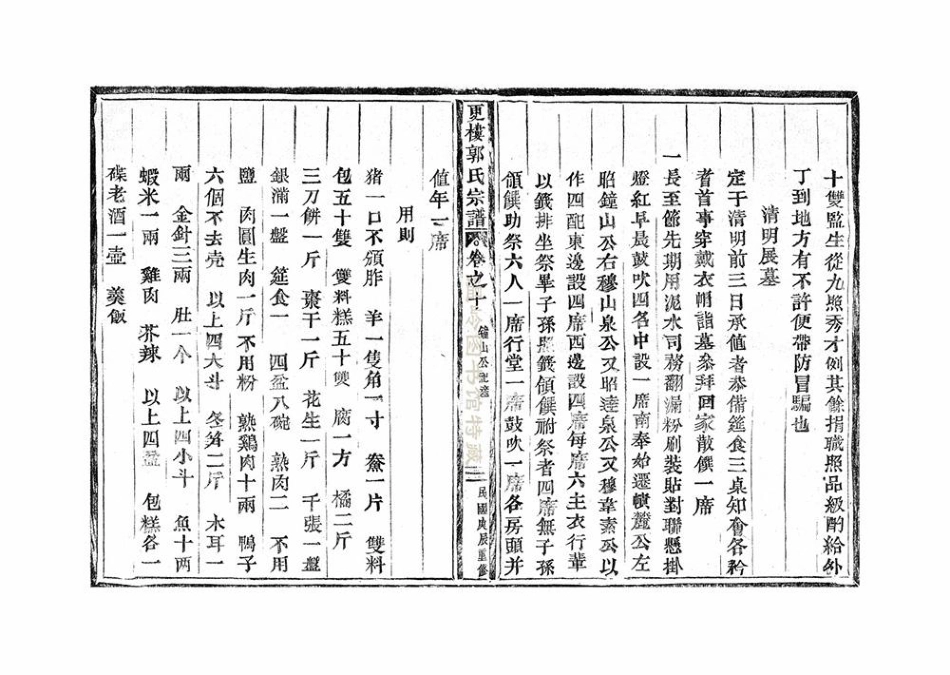 十雙監生從九照秀才例其餘捐職照品級酌給外
丁到地方有不許便帶防冒騙也
清明展墓
定于清明前三日承值者恭備筵食三桌知會各衿
者首事穿戴衣帽詣墓叅拜回家散僎一席
一長至節先期用泥水司務翻漏粉刷裝貼對聯懸掛
燈紅早晨鼓吹四名中設一席南奉始遷犢麓公左
昭鐘山公右穆山泉公又昭逵泉公又穆韋素公以
作四配東邊設四席西邊設四席每席六主衣行輩
以籤排坐祭畢子孫照籤領僎祔祭者四席無子孫
領僎助祭六人一席行堂一席鼓吹一席各房頭并
更樓郭氏宗譜
卷之十
鐘山公
民國庚辰重修
值年一席
用則
猪一口不須胙 羊一隻角一寸 鯗一片 雙料
包五十雙 雙料糕五十雙 腐一方 橘二斤
三刀餅一斤 棗干一斤 花生一斤 千張一盤
銀滿一盤 筵食一 四盆八碗 熟肉二 不用
鹽 肉圓生肉一斤不用粉 熟鷄肉十兩 鴨子
六個不去壳 以上四大斗 冬笋二斤 木耳一
兩 金針三兩 肚一个 以上四小斗 魚十兩
蝦米一兩 雞肉 芥辣 以上四盤 包糕各一
碟老酒一壺 羹飯